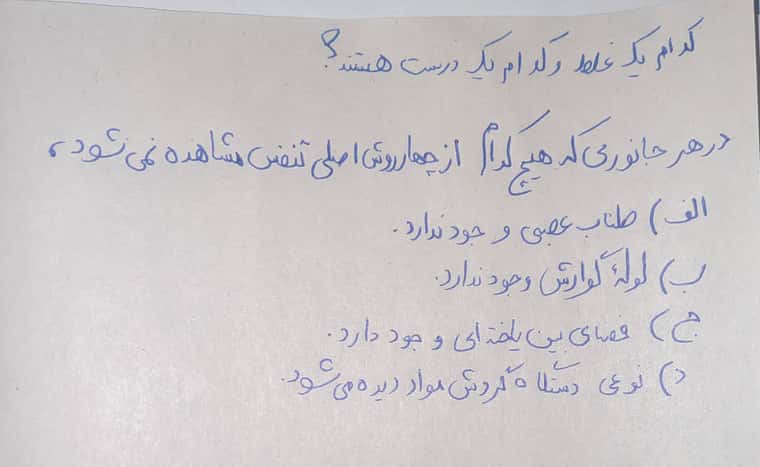 کدام یک غلط و کدام یک درست هستند؟
در هر جانوری که هیچ کدام از چهار روش اصلی تنفس مشاهده نمی شود،
الف) طناب عصبی وجود ندارد.
ب) لولهٔ گوارش وجود ندارد.
ج) فضای بین یاخته ای وجود دارد.
د) نوعی دستگاه گردش مواد دیده می شود.